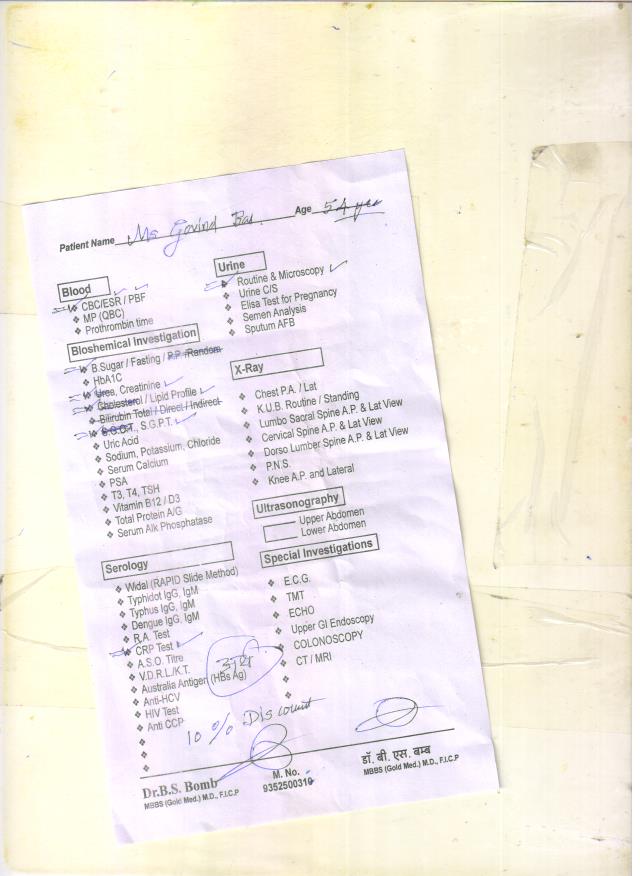 Patient Name Ms Govind Age 54
Blood
❖ CBC/ESR / PBF
❖ MP (QBC)
❖ Prothrombin time
Bioshemical Investigation
❖ B.Sugar / Fasting / P.P./Random
❖ HbA1C
❖ Urea, Creatinine
❖ Cholesterol / Lipid Profile
❖ Bilirubin Total / Direct / Indirect
❖ S.G.O.T., S.G.P.T.
❖ Uric Acid
❖ Sodium, Potassium, Chloride
❖ Serum Calcium
❖ PSA
❖ T3, T4, TSH
❖ Vitamin B12 / D3
❖ Total Protein A/G
❖ Serum Alk Phosphatase
Serology
❖ Widal (RAPID Slide Method)
❖ Typhidot IgG, IgM
❖ Typhus IgG, IgM
❖ Dengue IgG, IgM
❖ R.A. Test
❖ CRP Test
❖ A.S.O. Titre
❖ V.D.R.L./K.T.
❖ Australia Antigen (HBs Ag)
❖ Anti-HCV
❖ HIV Test
❖ Anti CCP
Urine
❖ Routine & Microscopy
❖ Urine C/S
❖ Elisa Test for Pregnancy
❖ Semen Analysis
❖ Sputum AFB
X-Ray
❖ Chest P.A. / Lat
❖ K.U.B. Routine / Standing
❖ Lumbo Sacral Spine A.P. & Lat View
❖ Cervical Spine A.P. & Lat View
❖ Dorso Lumber Spine A.P. & Lat View
❖ P.N.S.
❖ Knee A.P. and Lateral
Ultrasonography
Upper Abdomen
Lower Abdomen
Special Investigations
❖ E.C.G.
❖ TMT
❖ ECHO
❖ Upper GI Endoscopy
❖ COLONOSCOPY
❖ CT / MRI
10 % Discount
Dr.B.S. Bomb
MBBS (Gold Med.) M.D., F.I.C.P
M. No.
9352500310
डॉ. बी. एस. बम्ब
MBBS (Gold Med.) M.D., F.I.C.P